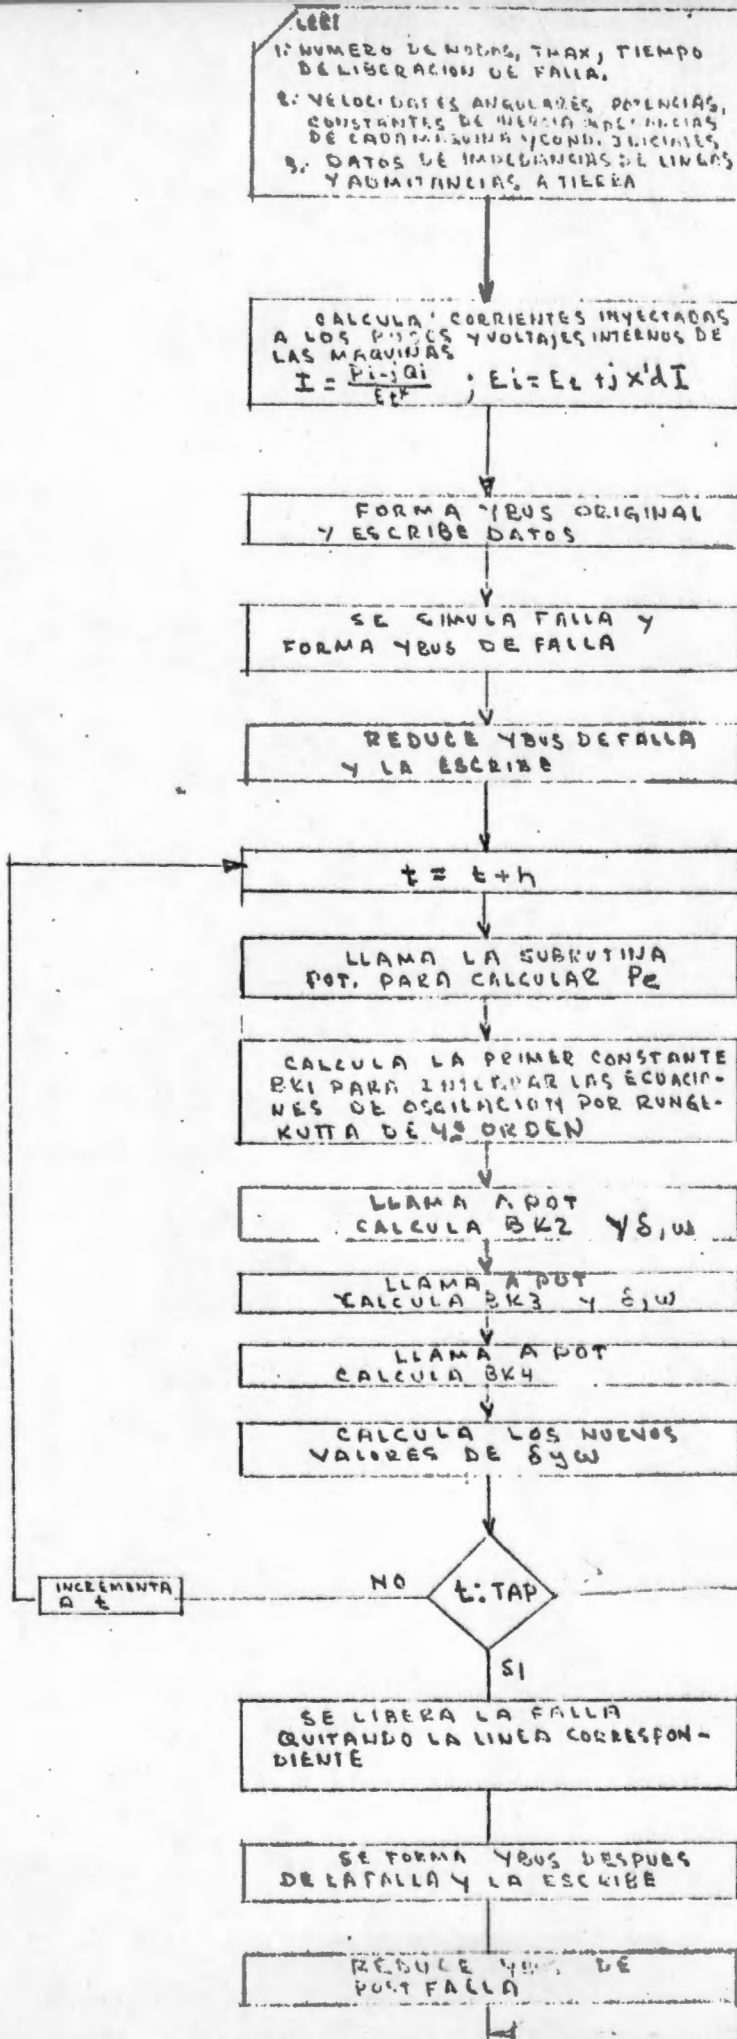 LEE:
1: NUMERO DE NODOS, TMAX, TIEMPO
DE LIBERACION DE FALLA.
2: VELOCIDADES ANGULARES, POTENCIAS,
CONSTANTES DE INERCIA
DE CADA MAQUINA Y COND. INICIALES
3. DATOS DE IMPEDANCIAS DE LINEAS
Y ADMITANCIAS A TIERRA
CALCULA CORRIENTES INYECTADAS
A LOS Y VOLTAJES INTERNOS DE
LAS MAQUINAS
I = Pi-jQi / Et* ; Ei = Et + j x'd I
FORMA YBUS ORIGINAL
Y ESCRIBE DATOS
SE SIMULA FALLA Y
FORMA YBUS DE FALLA
REDUCE YBUS DE FALLA
Y LA ESCRIBE
t = t + h
LLAMA LA SUBRUTINA
POT. PARA CALCULAR Pe
CALCULA LA PRIMER CONSTANTE
BK1 PARA INTEGRAR LAS ECUACIO-
NES DE OSCILACION POR RUNGE-
KUTTA DE 4º ORDEN
LLAMA A POT
CALCULA BK2 Y δ, ω
LLAMA A POT
CALCULA BK3 Y δ, ω
LLAMA A POT
CALCULA BK4
CALCULA LOS NUEVOS
VALORES DE δ y ω
INCREMENTA
A t
NO
t: TAP
SI
SE LIBERA LA FALLA
QUITANDO LA LINEA CORRESPON-
DIENTE
SE FORMA YBUS DESPUES
DE LA FALLA Y LA ESCRIBE
REDUCE YBUS DE
POST FALLA